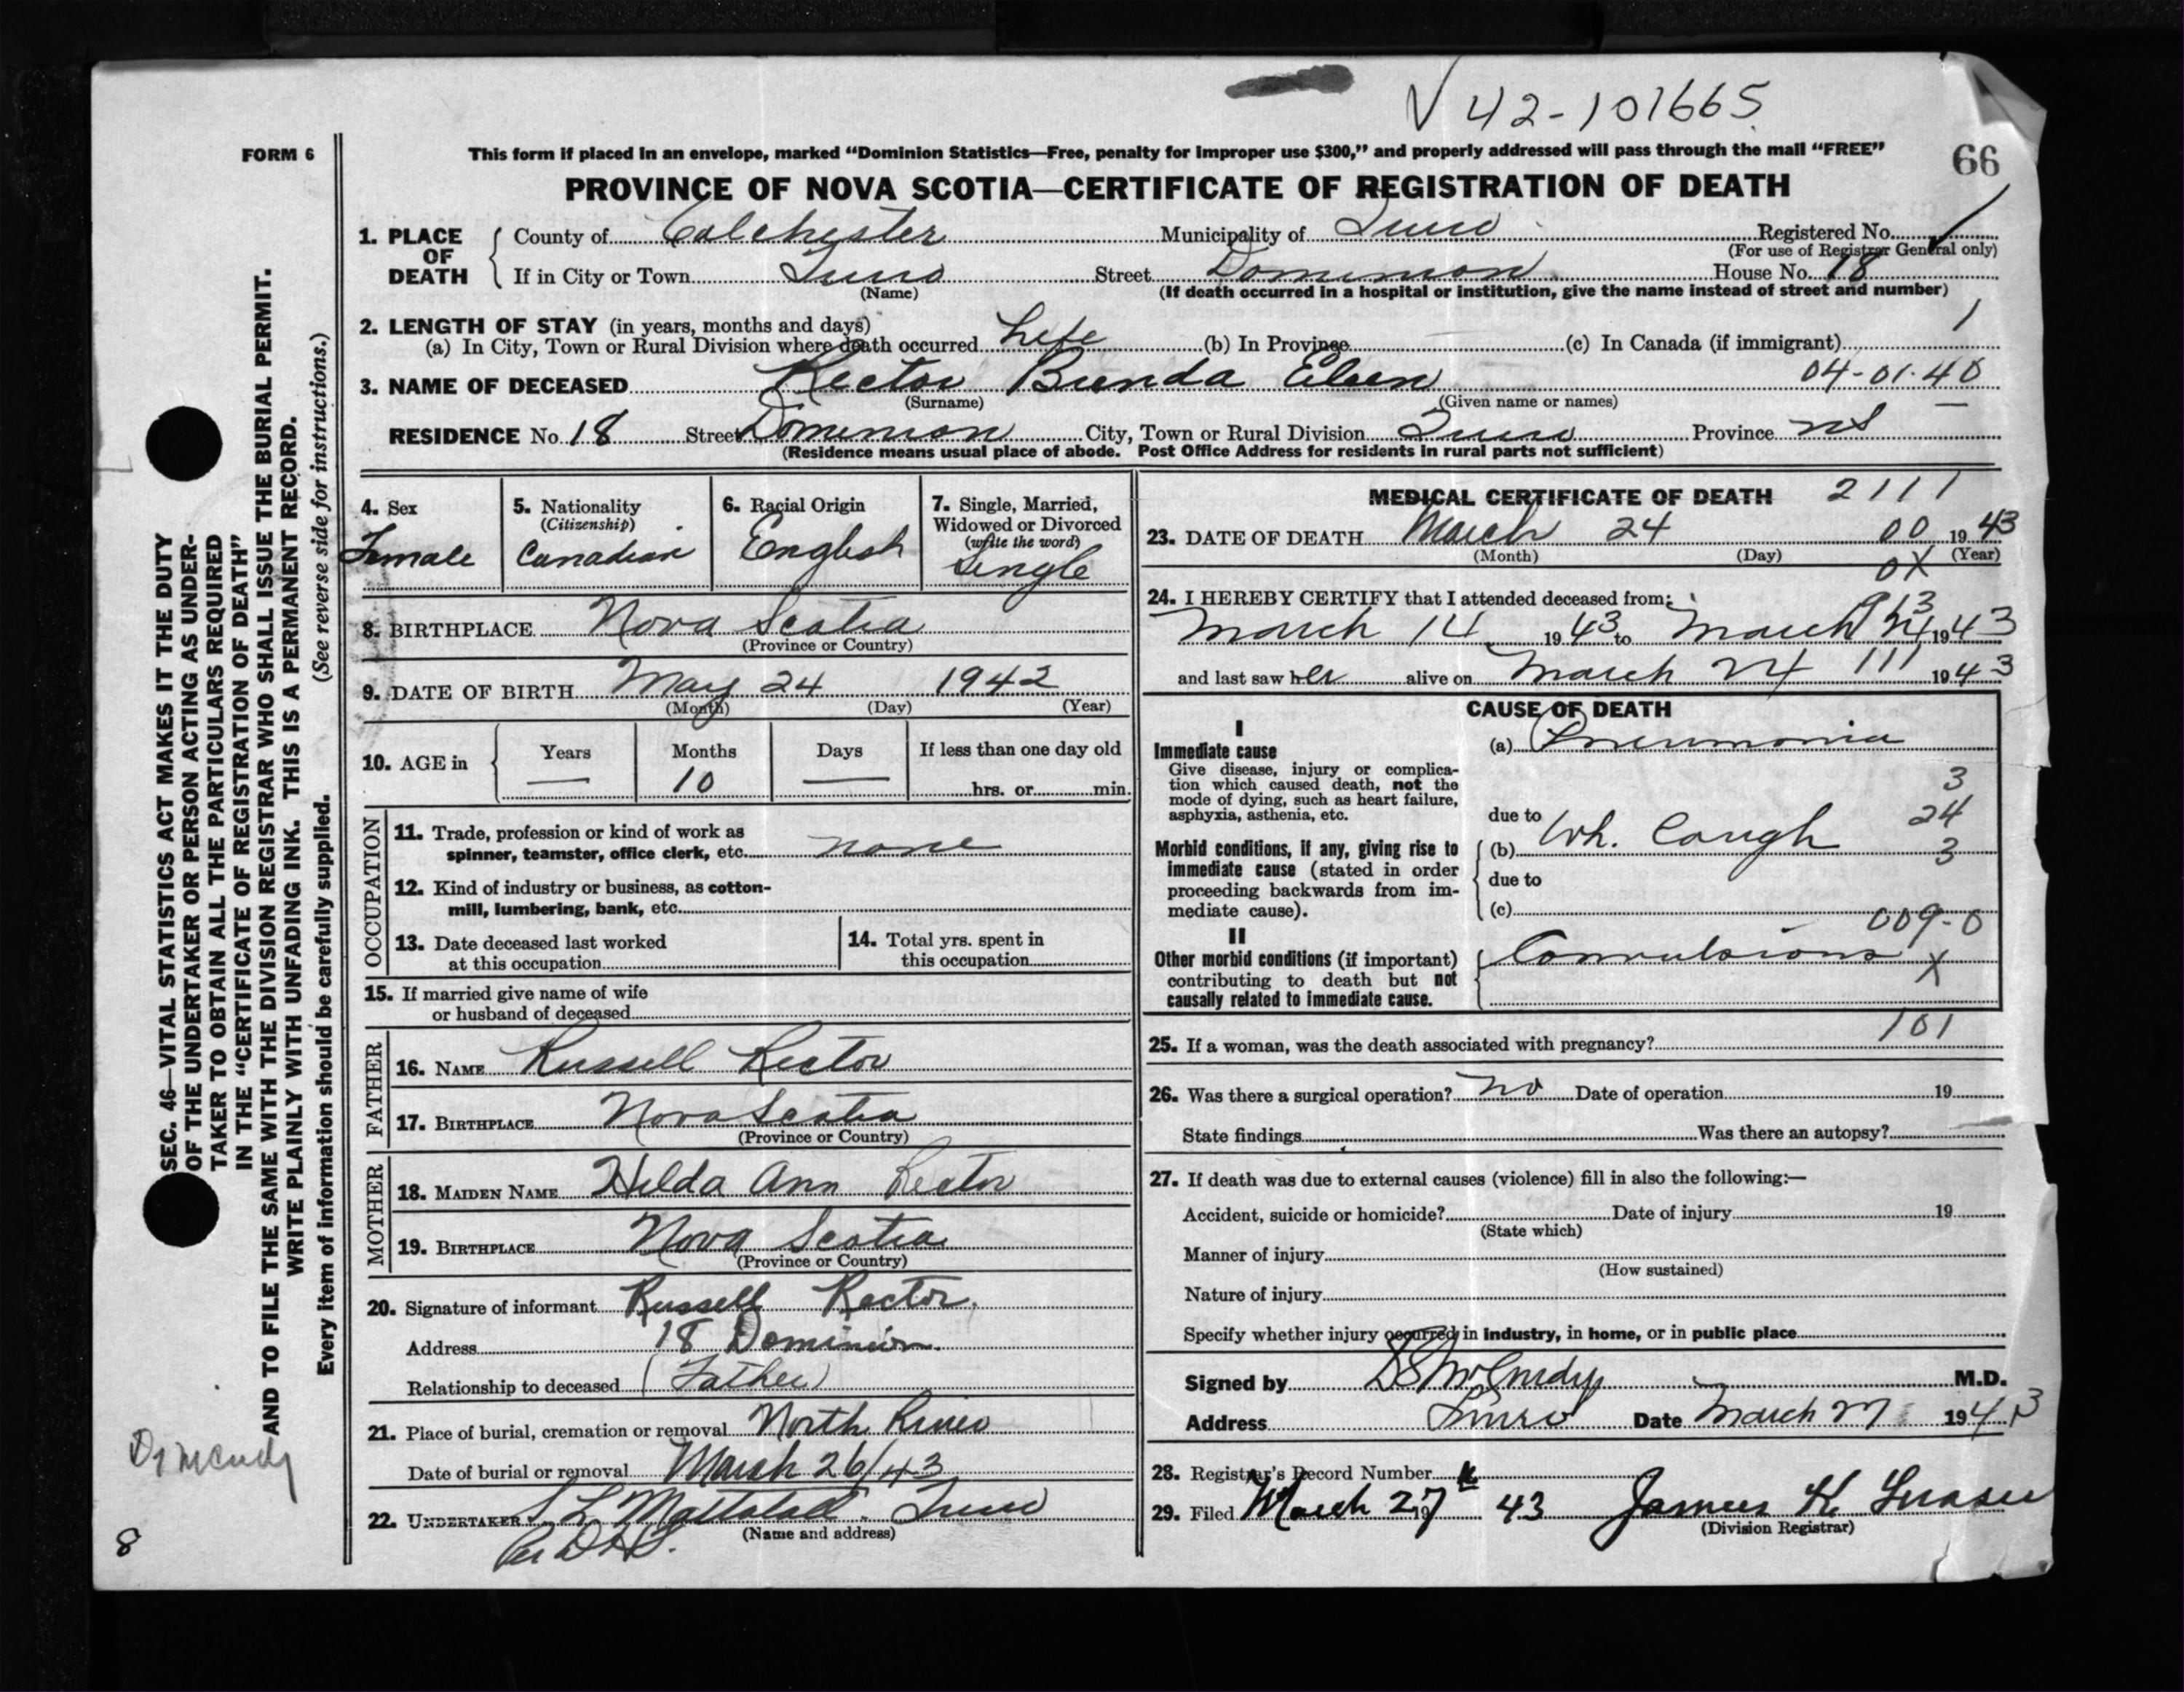 V 42-101665
FORM 6
This form if placed in an envelope, marked “Dominion Statistics—Free, penalty for improper use $300,” and properly addressed will pass through the mail “FREE”
66
PROVINCE OF NOVA SCOTIA—CERTIFICATE OF REGISTRATION OF DEATH
1. PLACE OF DEATH
County of Colchester Municipality of Truro Registered No.
(For use of Registrar General only)
If in City or Town Truro Street Dominion House No. 18
(Name) (If death occurred in a hospital or institution, give the name instead of street and number)
2. LENGTH OF STAY (in years, months and days) 1
(a) In City, Town or Rural Division where death occurred Life (b) In Province (c) In Canada (if immigrant)
3. NAME OF DECEASED Rector Brenda Eileen 04-01-40
(Surname) (Given name or names)
RESIDENCE No. 18 Street Dominion City, Town or Rural Division Truro Province NS
(Residence means usual place of abode. Post Office Address for residents in rural parts not sufficient)
4. Sex Female
5. Nationality (Citizenship) Canadian
6. Racial Origin English
7. Single, Married, Widowed or Divorced (write the word) Single
8. BIRTHPLACE Nova Scotia
(Province or Country)
9. DATE OF BIRTH May 24 1942
(Month) (Day) (Year)
10. AGE in Years — Months 10 Days — If less than one day old
hrs. or min.
OCCUPATION
11. Trade, profession or kind of work as
spinner, teamster, office clerk, etc. none
12. Kind of industry or business, as cotton-
mill, lumbering, bank, etc.
13. Date deceased last worked
at this occupation
14. Total yrs. spent in
this occupation
15. If married give name of wife
or husband of deceased
FATHER
16. NAME Russell Rector
17. BIRTHPLACE Nova Scotia
(Province or Country)
MOTHER
18. MAIDEN NAME Hilda Ann Rector
19. BIRTHPLACE Nova Scotia
(Province or Country)
20. Signature of informant Russell Rector.
Address 18 Dominion.
Relationship to deceased (Father)
21. Place of burial, cremation or removal North River
Date of burial or removal March 26/43
22. UNDERTAKER S L Mattatall. Truro
(Name and address)
MEDICAL CERTIFICATE OF DEATH 2111
23. DATE OF DEATH March 24 00 1943
(Month) (Day) (Year)
0X
24. I HEREBY CERTIFY that I attended deceased from:
March 14 1943 to March 24 1943
and last saw her alive on March 24 111 1943
CAUSE OF DEATH
I
Immediate cause (a) Pneumonia
Give disease, injury or complica-
tion which caused death, not the
mode of dying, such as heart failure,
asphyxia, asthenia, etc.
3
due to 24
Morbid conditions, if any, giving rise to
immediate cause (stated in order
proceeding backwards from im-
mediate cause).
(b) Wh. Cough 3
due to
(c) 009-0
II
Other morbid conditions (if important)
contributing to death but not
causally related to immediate cause.
Convulsions X
101
25. If a woman, was the death associated with pregnancy?
26. Was there a surgical operation? no Date of operation 19
State findings Was there an autopsy?
27. If death was due to external causes (violence) fill in also the following:—
Accident, suicide or homicide? Date of injury 19
(State which)
Manner of injury
(How sustained)
Nature of injury
Specify whether injury occurred in industry, in home, or in public place
Signed by M.D.
Address Truro Date March 27 1943
28. Registrar's Record Number
29. Filed March 27 19 43 James H. Fraser
(Division Registrar)
SEC. 46—VITAL STATISTICS ACT MAKES IT THE DUTY
OF THE UNDERTAKER OR PERSON ACTING AS UNDER-
TAKER TO OBTAIN ALL THE PARTICULARS REQUIRED
IN THE “CERTIFICATE OF REGISTRATION OF DEATH”
AND TO FILE THE SAME WITH THE DIVISION REGISTRAR WHO SHALL ISSUE THE BURIAL PERMIT.
WRITE PLAINLY WITH UNFADING INK. THIS IS A PERMANENT RECORD.
Every item of information should be carefully supplied. (See reverse side for instructions.)
8